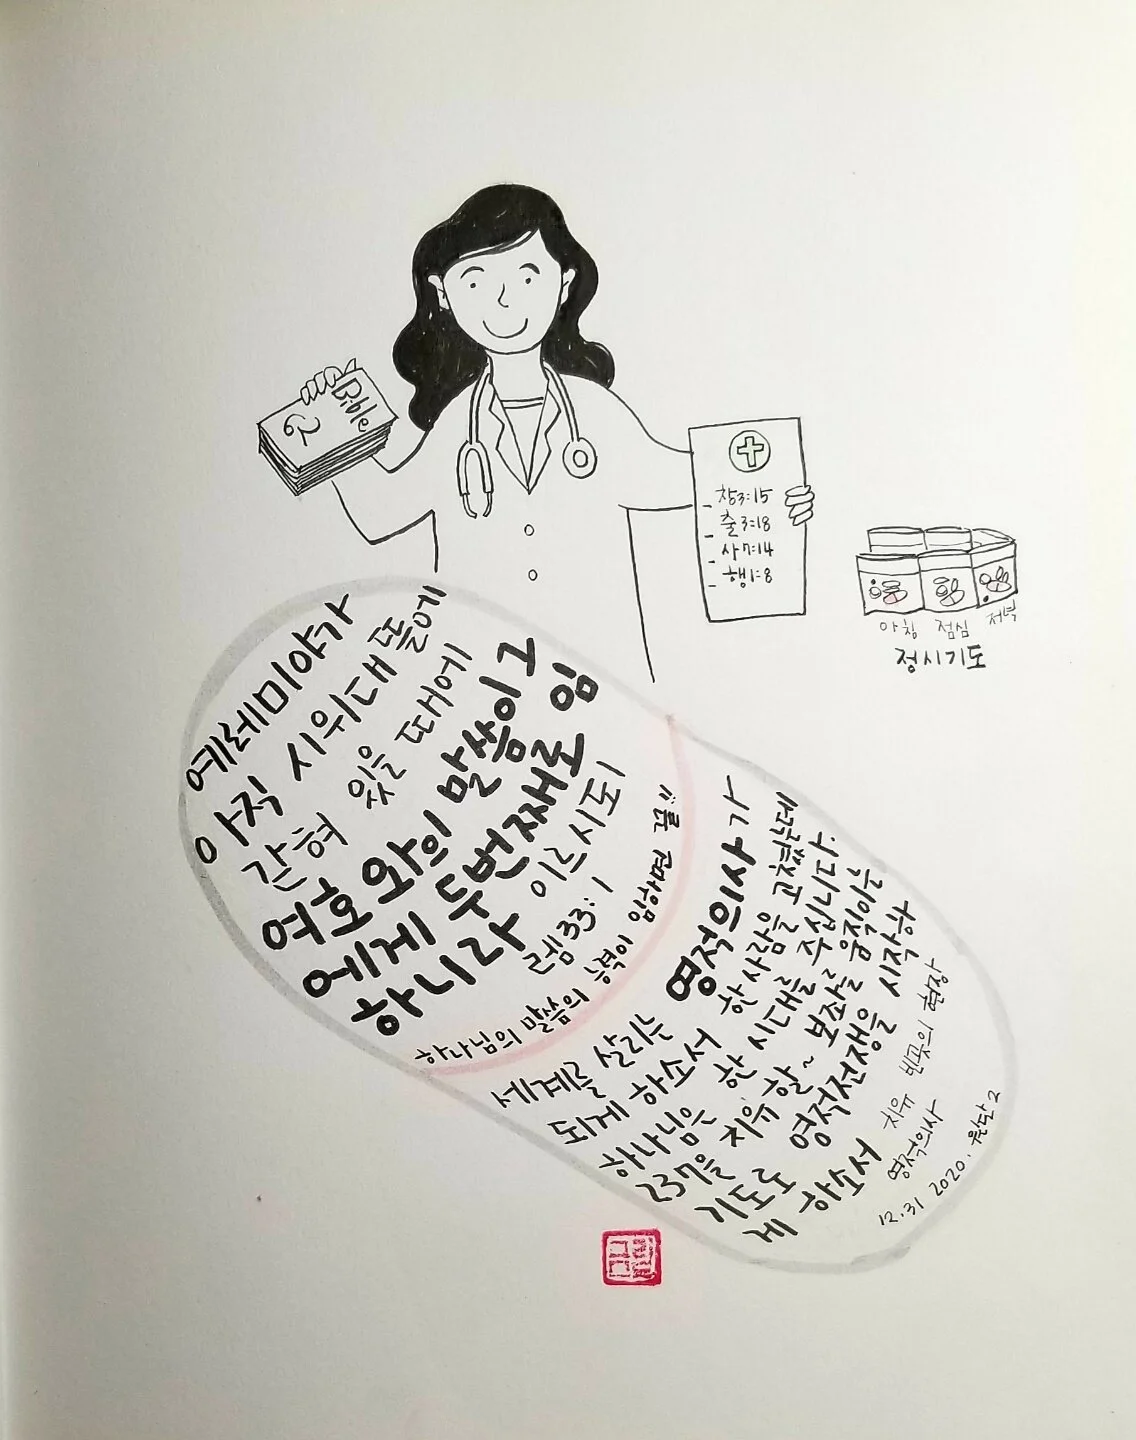 Bible
창3:15
출3:18
사7:14
행1:8
아침 점심 저녁
정시기도
예레미야가
아직 시위대 뜰에
갇혀 있을 때에
여호와의 말씀이 그
에게 두번째로 임
하니라 이르시되
렘33:1
하나님의 말씀의 능력이 임하면
세계를 살리는 영적의사가
되게 하소서 한 사람을 고쳤는데
하나님은 한 시대를 주십니다.
237을 치유할~ 보좌를 움직이는
기도로 영적전쟁을 시작하
게 하소서 치유 빈곳의 현장
영적의사
12.31 2020. 월단2